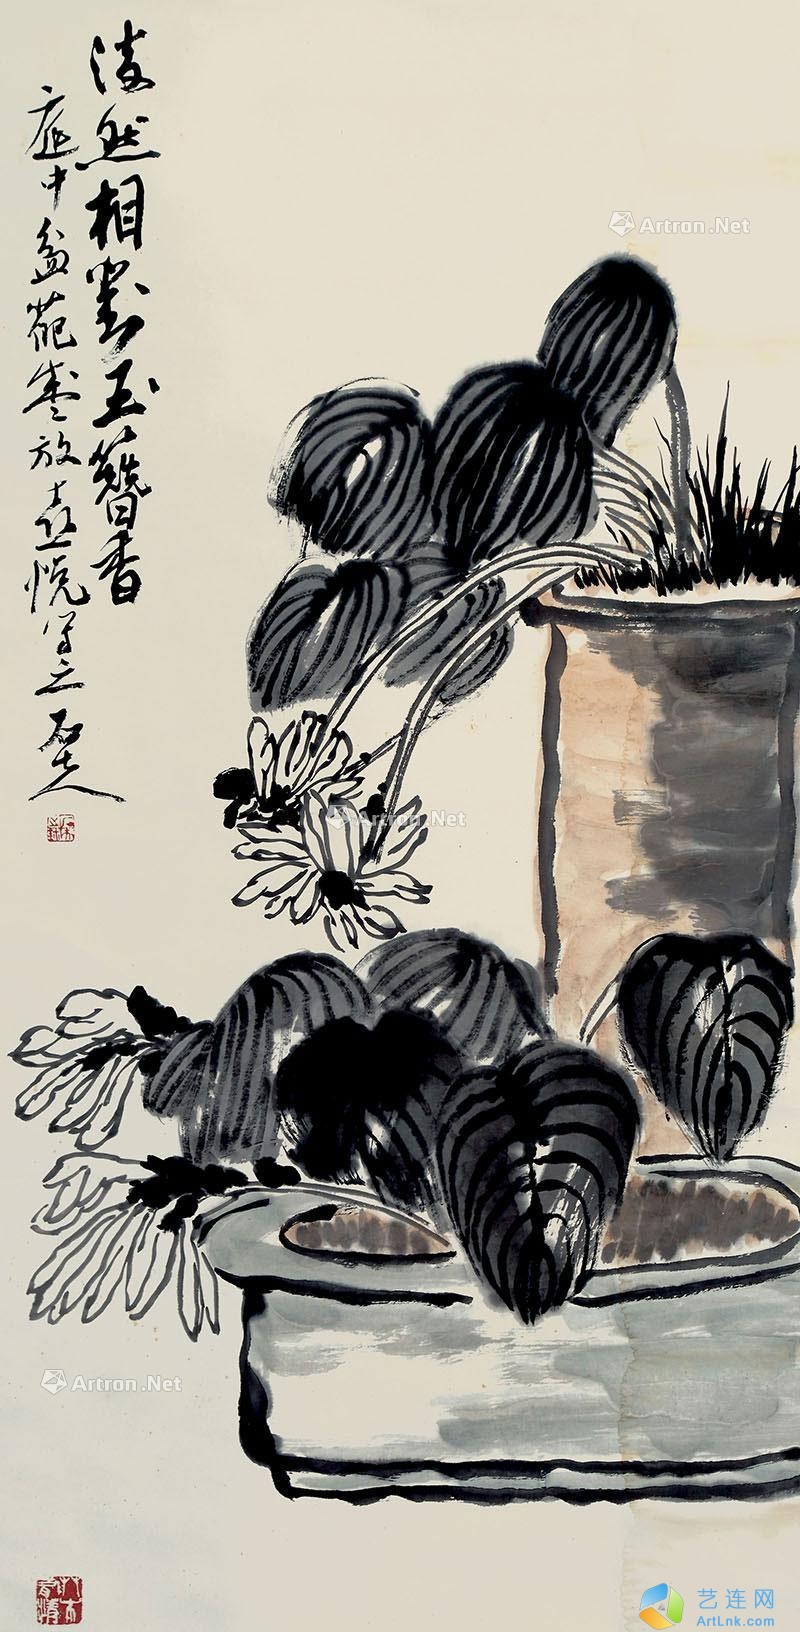 淡然相對玉簪香
庭中盆花盛放喜悅寫之石人
Artron.Net
Artron.Net
Artron.Net
艺连网
ArtLnk.com